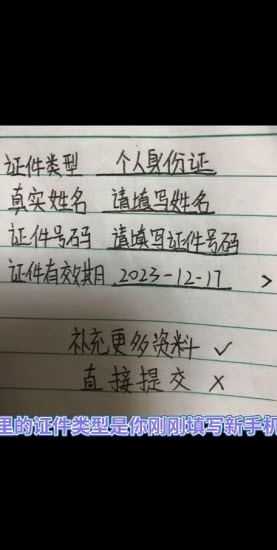 证件类型 个人身份证
真实姓名 请填写姓名
证件号码 请填写证件号码
证件有效期 2023-12-17 >
补充更多资料 ✓
直接提交 ×
里的证件类型是你刚刚填写新手机